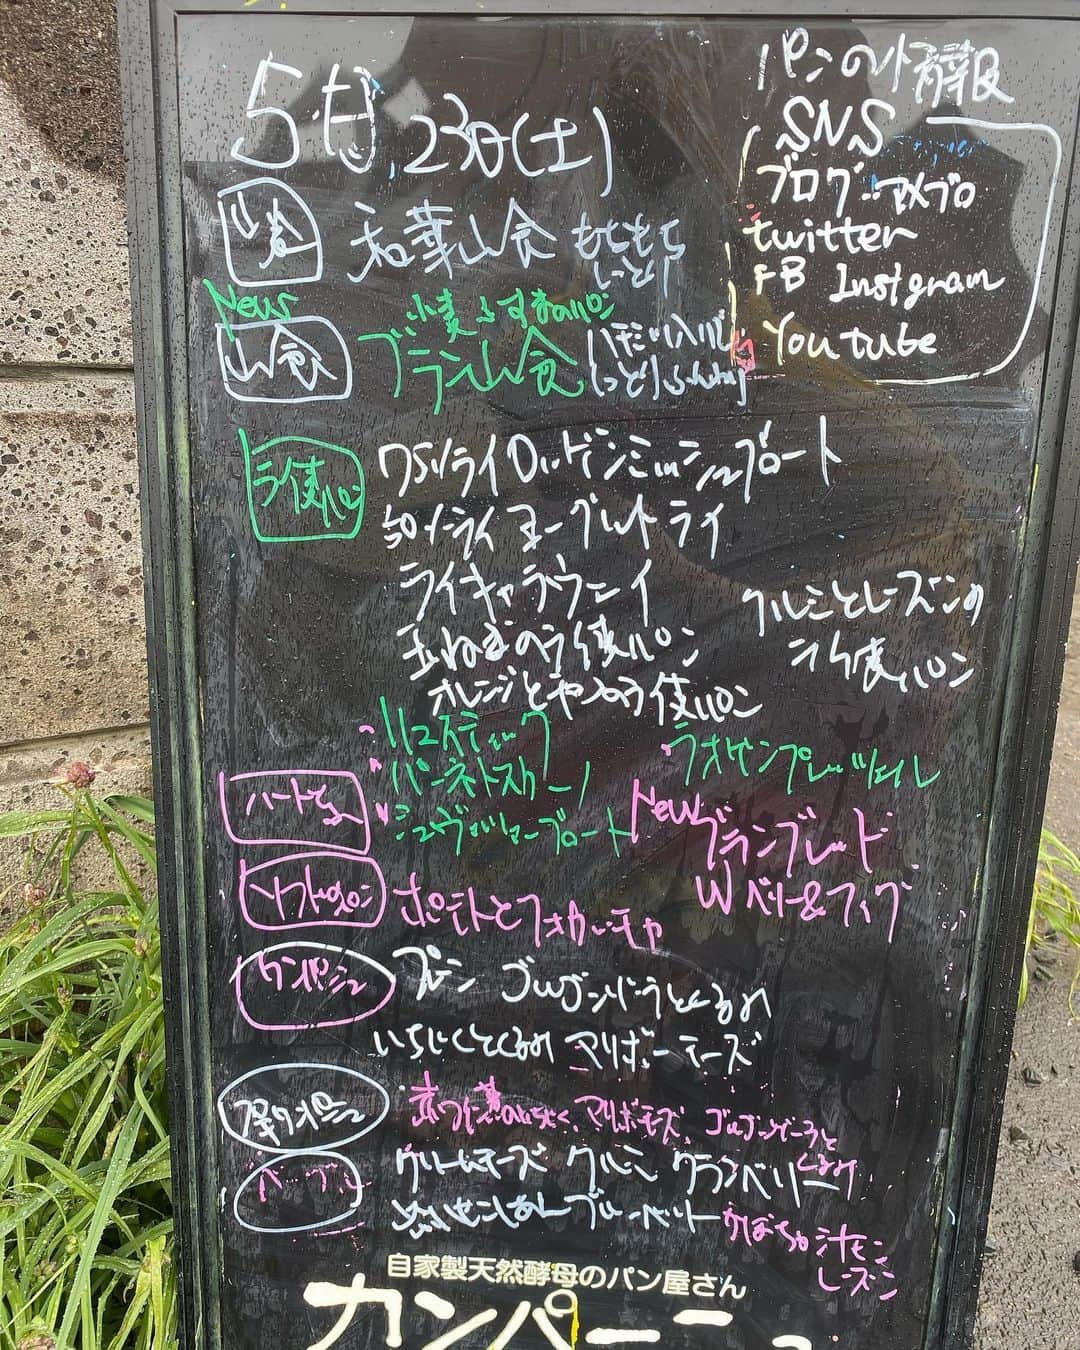 パンの情報
SNS
ブログ アメブロ
twitter
FB Instgram
Youtube
5月23日(土)
山食
若葉山食 もちもち
しっとり
New
小麦ふすまのパン
山食
ブラン山食
しっとり
ライ麦パン
75%ライ ロッゲンミッシュブロート
50%ライ ヨーグルトライ
ライキャラウェイ
玉ねぎのライ麦パン
クルミとレーズンの
ライ麦パン
オレンジと のライ麦パン
リュスティック
パーネトスカーノ
ラオゲンプレッツェル
ハード
シュヴァルツブロート
New
ブランブレッド
Wベリー&フィグ
ソフト パン
ポテトとフォカッチャ
カンパーニュ
プレーン ゴルゴンゾーラとくるみ
いちじくとくるみ マリボーチーズ
赤ワイン いちじく、マリボーチーズ、ゴルゴンゾーラと
くるみ
ベーグル
クリームチーズ クルミ クランベリー
プレーン あん ブルーベリー かぼちゃ シナモン
レーズン
自家製天然酵母のパン屋さん
カンパーニュ